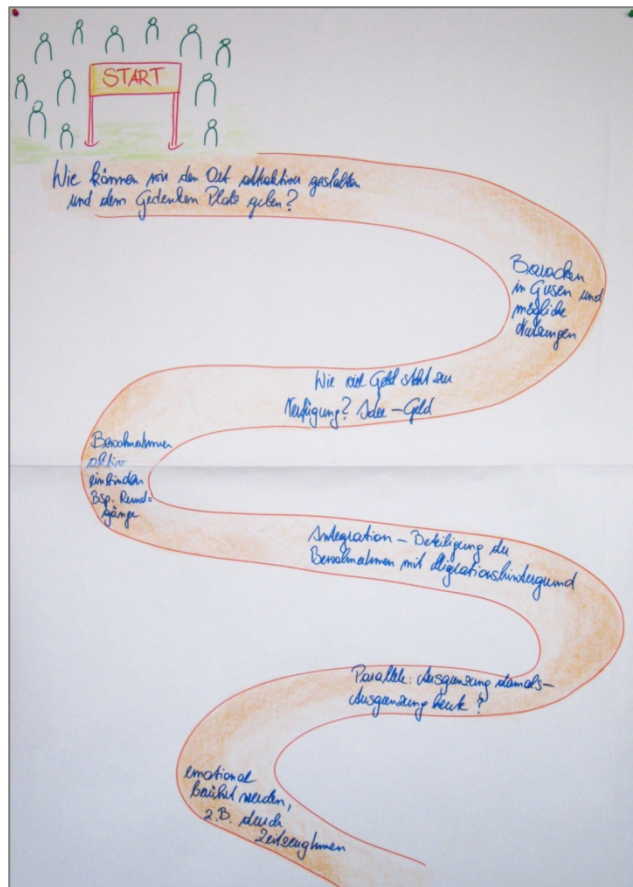 START
Wie können wir den Ort attraktiv gestalten
und dem Gedenken Platz geben?
Baracken
in Gusen und
mögliche
Nutzungen
Wie viel Geld steht zur
Verfügung? Idee – Geld
BewohnerInnen
aktiv
einbinden
Bsp. Rund=
gänge
Integration – Beteiligung der
BewohnerInnen mit Migrationshintergrund
Parallele: Ausgrenzung damals –
Ausgrenzung heute?
emotional
berührt werden,
z.B. durch
ZeitzeugInnen